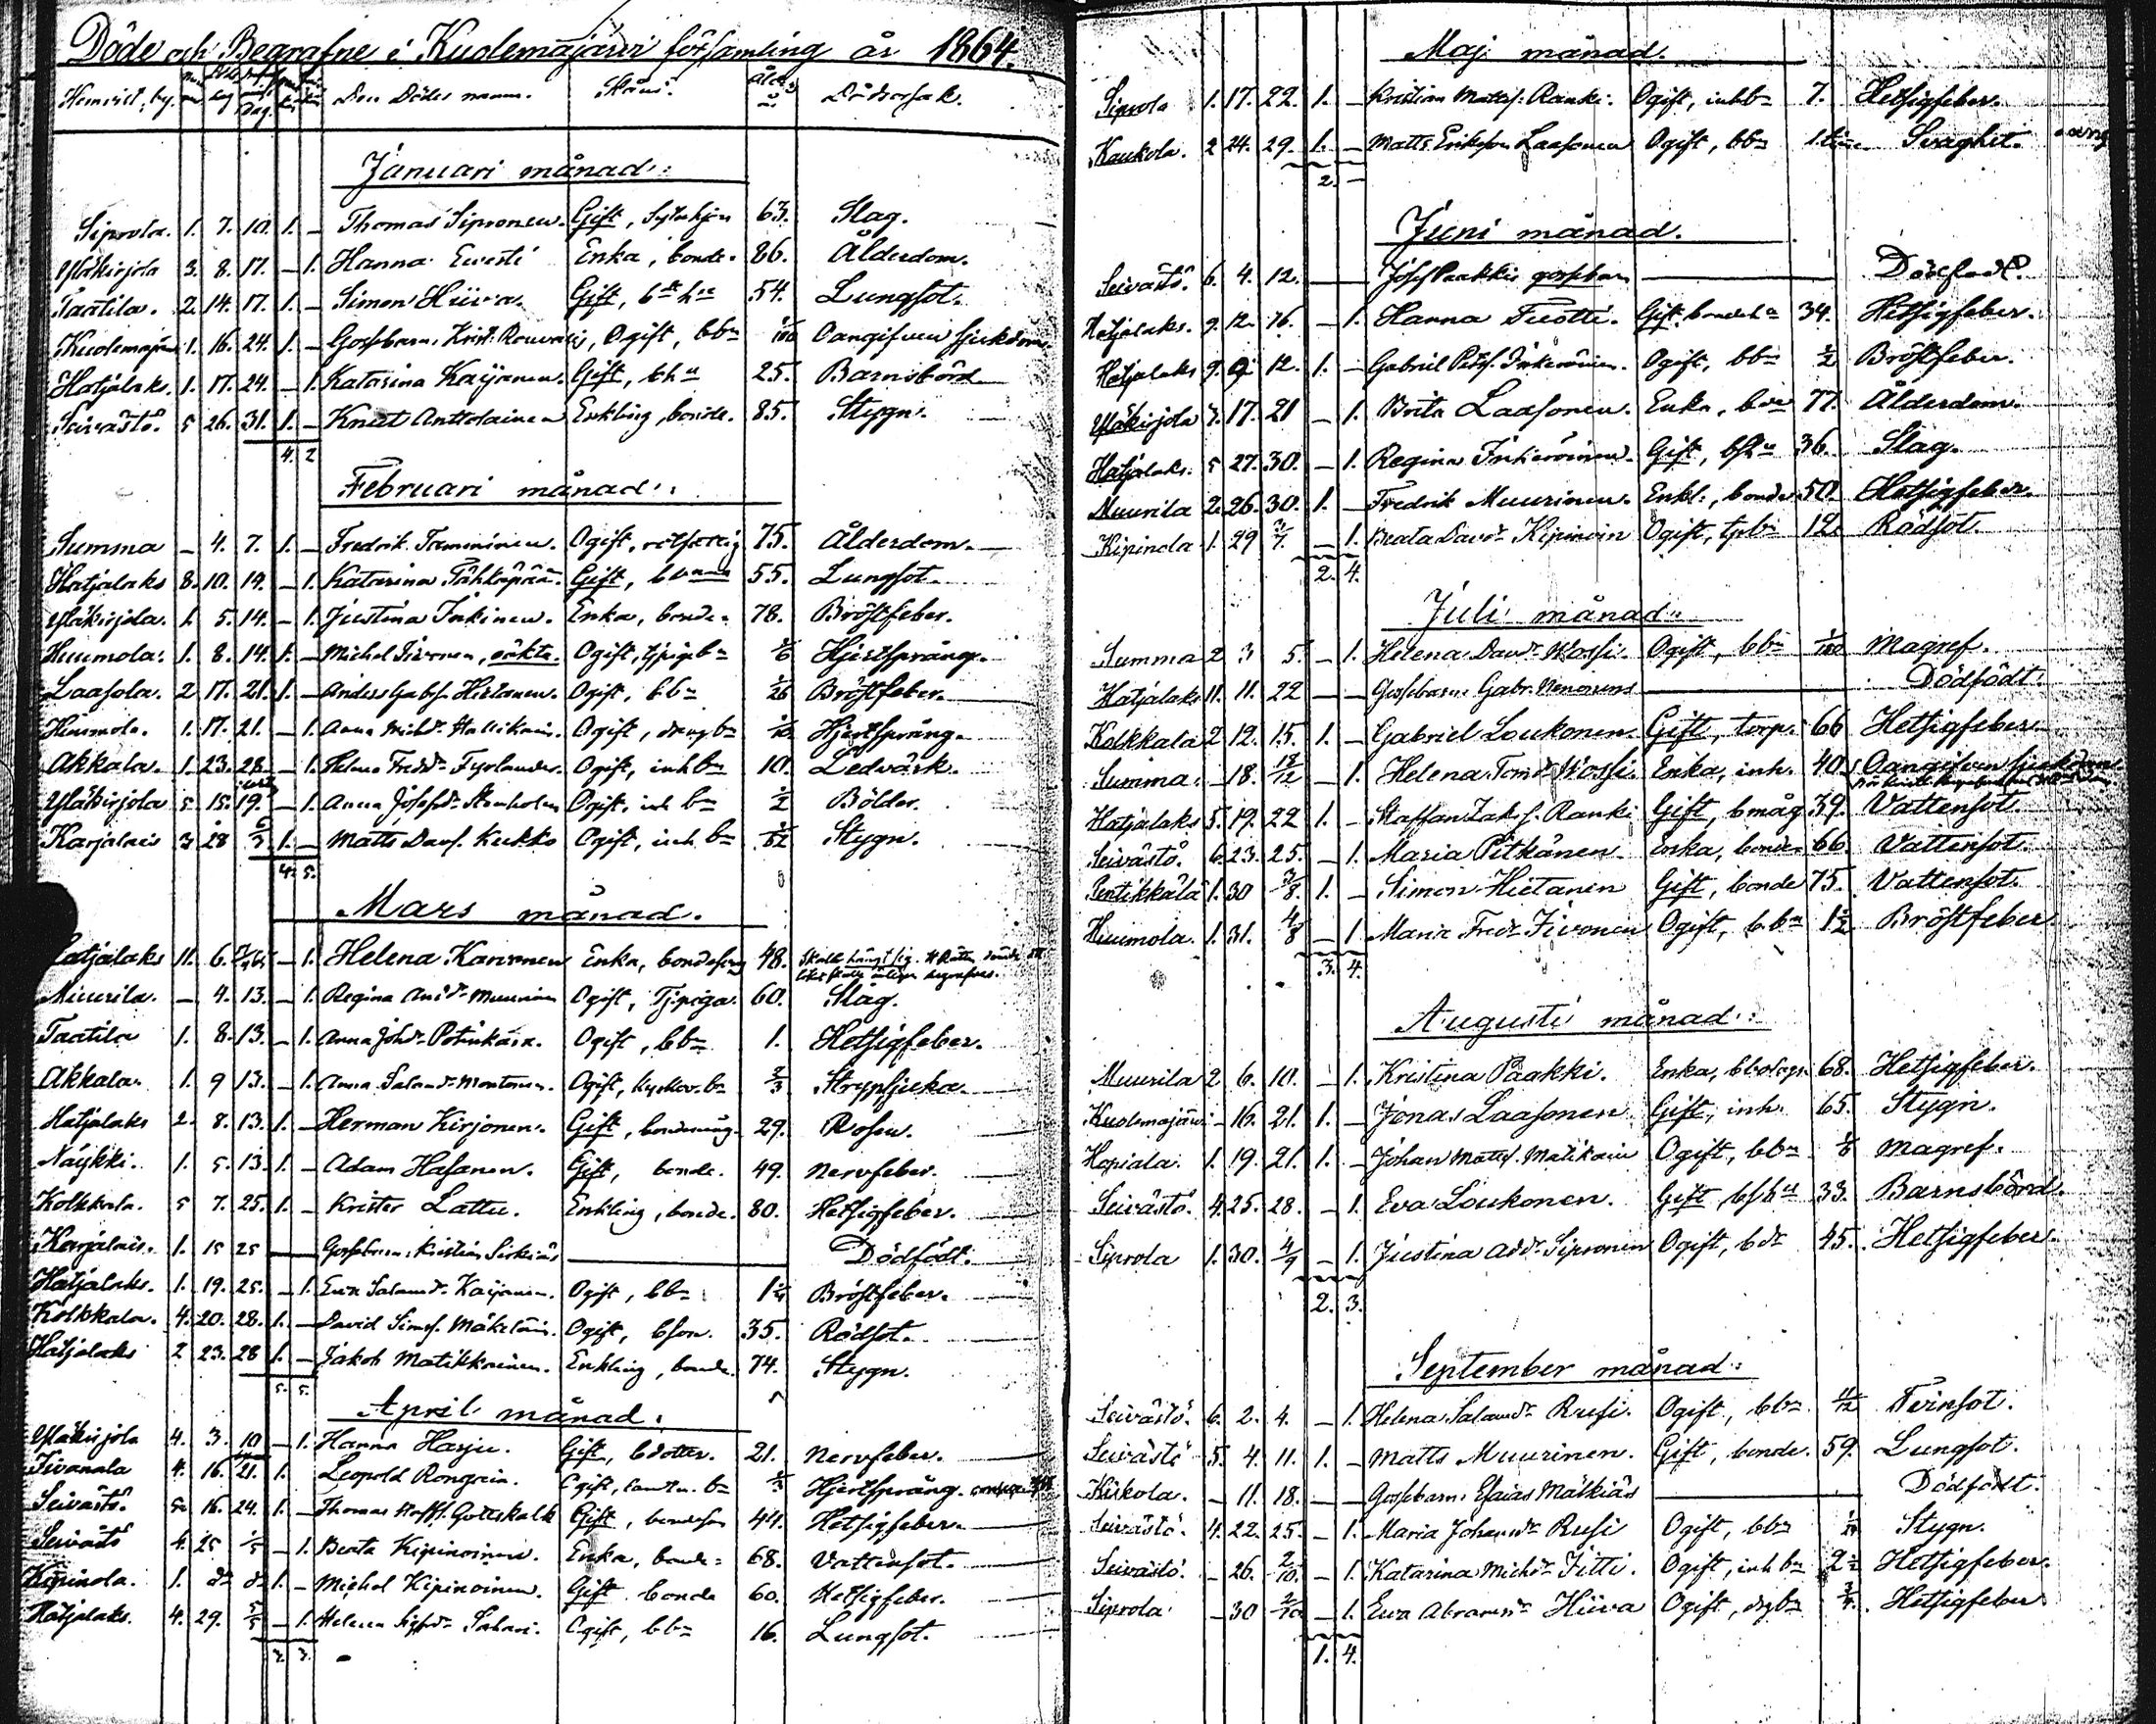 Döde och Begrafne i Kuolemajärvi församling år 1864.
Hemvist, by. Dag Dag. Den Dödes namn. Stånd. Ålder Dödsorsak.
Januari månad:
Siprola. 1. 7. 10. 1. – Thomas Sipronen. Gift, 63. Slag.
Yläkirjola 3. 8. 17. – 1. Hanna Eerosti Enka, bonde= 86. Ålderdom.
Taatila. 2. 14. 17. 1. – Simon Hiiva. Gift, 54. Lungsot.
Kuolemajärvi 1. 16. 24. 1. – Gossbarn, Krist. Ogift, bbn 1/100 Oangifven sjukdom.
Hatjalaks. 1. 17. 24. – 1. Katarina Kaijanen. Gift, bhu 25. Barnsbörd
Seivästö. 5 26. 31. 1. – Knut Anttolainen Enkling, bonde. 85. Stygn.
4. 2
Februari månad:
Summa – 4. 7. 1. – Fredrik Tamminen. Ogift, rotfattig 75. Ålderdom.
Hatjalaks 8. 10. 14. – 1. Katarina Tähkäpää. Gift, 55. Lungsot.
Yläkirjola. 1. 5. 14. – 1. Justina Inkinen. Enka, bonde= 78. Bröstfeber.
Huumola. 1. 8. 14. 1. – Michel Iivonen, oäkta. Ogift, tjpigebn 1/6 Hjertsprång.
Laasola. 2 17. 21. 1. – Anders Gabrs. Hietanen. Ogift, bbn 1/26 Bröstfeber.
Huumola. 1. 17. 21. – 1. Anna Michdr Ogift, drngbn 1/12 Hjertsprång.
Akkala. 1. 23. 28. – 1. Helena Fredr Fyrlander. Ogift, inhbn 10. Ledvärk.
Yläkirjola 5. 15. 19. – 1. Anna Josefdr Stenholm Ogift, inh bn 1/2 Bölder.
Karjalais 3 28 6/3 1. – Matts Davs. Kukko Ogift, inh bn 1/52 Stygn.
4. 5.
Mars månad.
Hatjalaks 11. 6. – 1. Helena Karvonen Enka, 48. Skall hängt sig.
Muurila. – 4. 13. – 1. Regina Anddr Muurinen Ogift, Tjpiga. 60. Slag.
Taatila 1. 8. 13. – 1. Anna Johdr Potinkara. Ogift, bbn 1. Hetsigfeber.
Akkala. 1. 9 13. – 1. Anna Salamdr Montonen. Ogift, 2/3 Strypsjuka.
Hatjalaks 2. 8. 13. 1. – Herman Kirjonen. Gift, bondmåg 29. Rosen.
Näykki. 1. 5. 13. 1. – Adam Hasanen. Gift, bonde. 49. Nervfeber.
Kolkkala. 5 7. 25. 1. – Krister Lattu. Enkling, bonde. 80. Hetsigfeber.
Karjalais. 1. 15 25 Gossbarn, Kristian Sirkiäs Dödfödt.
Hatjalaks. 1. 19. 25. – 1. Eva Salamdr Kaijanen. Ogift, bbn 1 1/4 Bröstfeber.
Kolkkala. 4. 20. 28. 1. – David Sims. Mäkeläin. Ogift, bson. 35. Rödsot.
Hatjalaks 2 23. 28 1. – Jakob Matikkainen. Enkling, bonde. 74. Stygn.
5. 5.
April månad.
Yläkirjola 4. 3. 10 – 1. Hanna Harju. Gift, bdotter. 21. Nervfeber.
Iivanala 4. 16. 21. 1. Leopold Rongain. Ogift, 2/3 Hjertsprång.
Seivästö. 5. 16. 24. 1. – Thomas Gottskalk Gift, bondeson 44. Hetsigfeber.
Seivästö 4. 25 1/5 – 1. Beata Kipinoinen. Enka, bonde= 68. Vattensot.
Kipinola. 1. do do 1. – Michel Kipinoinen. Gift bonde 60. Hetsigfeber.
Hatjalaks. 4. 29. 5/5 – 1. Helena Ogift, bbn 16. Lungsot.
3. 3.
Maj månad.
Siprola 1. 17. 22. 1. – Kristian Mattss. Ranki. Ogift, inhbn 7. Hetsigfeber.
Kaukola. 2 24. 29. 1. – Matts Eriksson Laasonen Ogift, bbn 1. tim. Svaghet.
2. –
Juni månad.
Seivästö. 6. 4. 12. Josef Paakkis gossbarn Dödfödt.
Hatjalaks. 9. 12. 16. – 1. Hanna Tuotti. Gift, 34. Hetsigfeber.
Hatjalaks 9. 9. 12. 1. – Gabriel Petrs. Inkeroinen. Ogift, bbn 1/2 Bröstfeber.
Yläkirjola 7. 17. 21 – 1. Brita Laasonen. Enka, 77. Ålderdom.
Hatjalaks. 5 27. 30. – 1. Regina Inkeroinen. Gift, bshu 36. Slag.
Muurila 2. 26. 30. 1. – Fredrik Muurinen. Enkl., bonde 50. Hetsigfeber.
Kipinola 1. 29 3/7. – 1. Beata Davdr Kipinoin Ogift, 12. Rödsot.
2. 4.
Juli månad.
Summa 2 3 5. – 1. Helena Davdr Wossi. Ogift, bbn 1/100 Magref.
Hatjalaks 11. 11. 22 – – Gossebarn, Gabr. Nenonens Dödfödt.
Kolkkala 2 12. 15. 1. – Gabriel Loukonen. Gift, torp. 66 Hetsigfeber.
Summa – 18. 18/12 – 1. Helena Tomdr Wossi. Enka, inh. 40. Oangifven sjukdom
Hatjalaks 5. 19. 22 1. – Staffan Jaks. Ranki Gift, bmåg 39. Vattensot.
Seivästö 6. 23. 25. – 1. Maria Pitkänen Enka, bonde= 66. Vattensot.
Pentikkälä 1. 30 3/8. 1. – Simon Hietanen Gift, bonde 75. Vattensot.
Huumola. 1. 31. 4/8 – 1 Maria Fredr Iivonen Ogift, bbn 1 1/2 Bröstfeber
3. 4.
Augusti månad:
Muurila 2 6. 10. – 1. Kristina Paakki. Enka, 68. Hetsigfeber.
Kuolemajärvi – 16. 21. 1. – Jonas Laasonen. Gift, inh. 65. Stygn.
Hopiala. 1. 19. 21. 1. – Johan Matts. Matikain Ogift, bbn 1/8 Magref.
Seivästö. 4. 25. 28. – 1. Eva Loukonen. Gift, bshu 33. Barnsbörd.
Siprola 1. 30. 4/9 – 1. Justina Addr Sipronen Ogift, bdr 45. Hetsigfeber.
2. 3.
September månad:
Seivästö. 6. 2. 4. – 1. Helena Salamdr Rusi. Ogift, bbn 11/12 Tvinsot.
Seivästö 5. 4. 11. 1. – Matts Muurinen. Gift, bonde. 59. Lungsot.
Kirkola. – 11. 18. – – Gossebarn, Esaias Mälkiäs Dödfödt.
Seivästö. 4. 22. 25. – 1. Maria Johansdr Rusi Ogift, bbn Stygn.
Seivästö. – 26. 2/10 – 1. Katarina Michdr Titti. Ogift, inh bn 2 1/2 Hetsigfeber.
Siprola – 30 2/10 – 1. Eva Abramsdr Hiiva Ogift, drgbn 3/4. Hetsigfeber
1. 4.